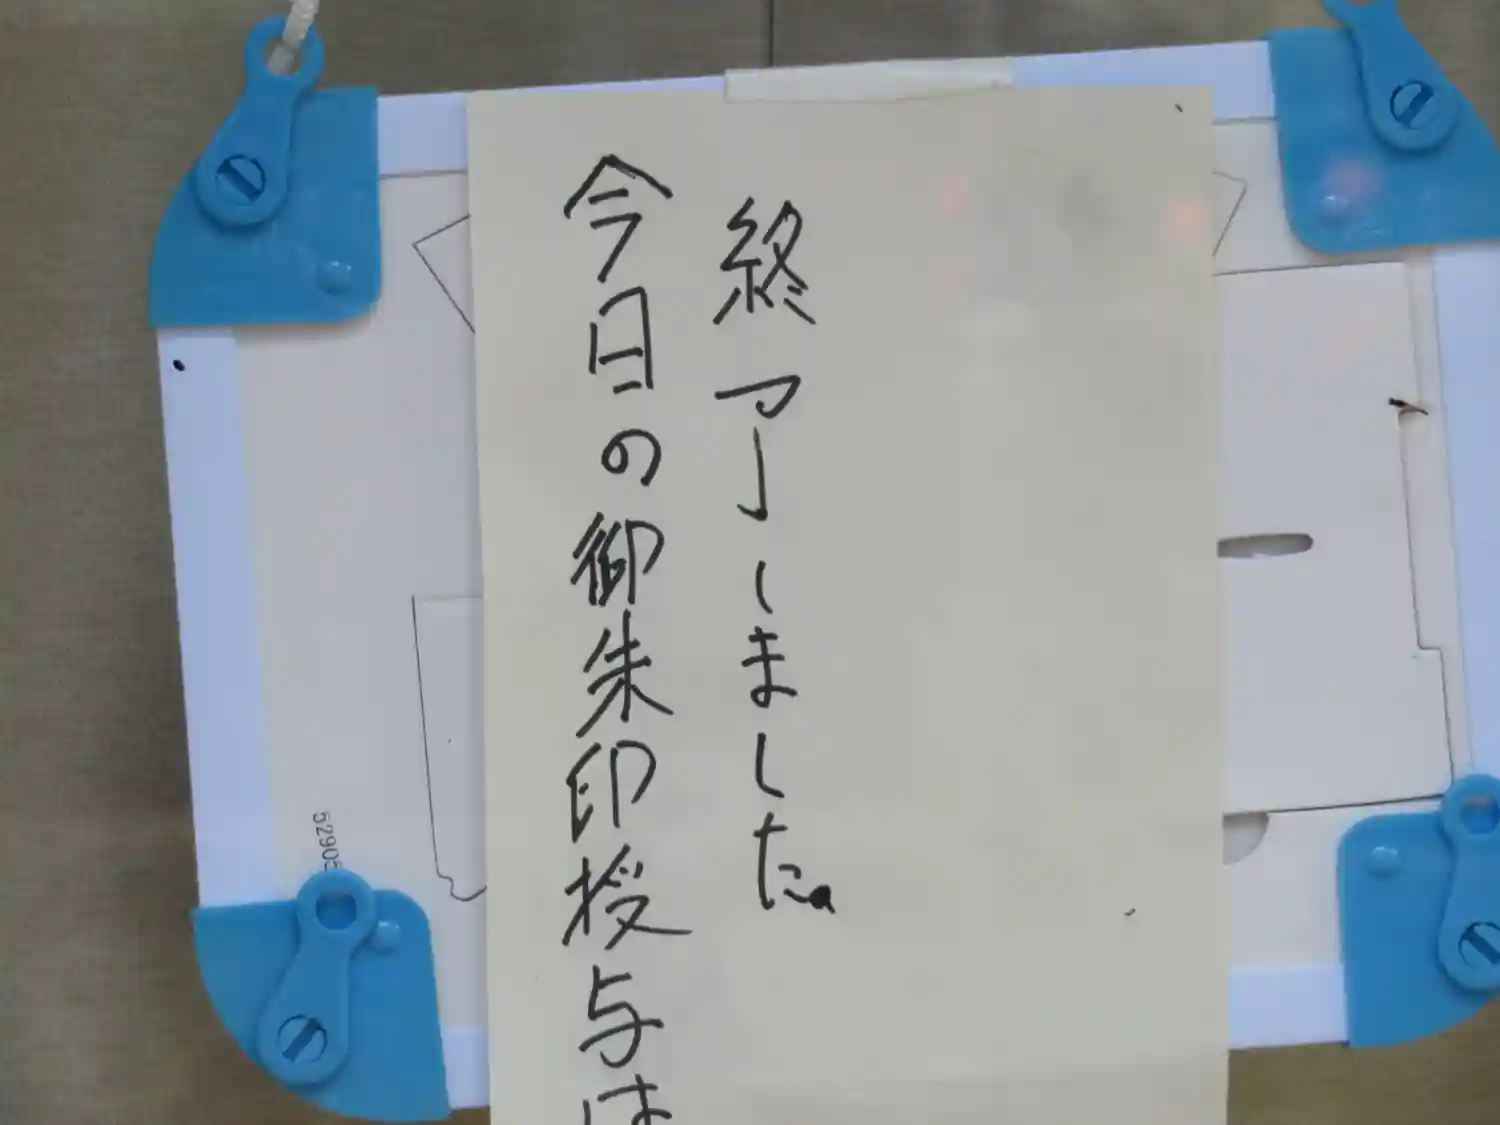 今日の御朱印授与は
終了しました。